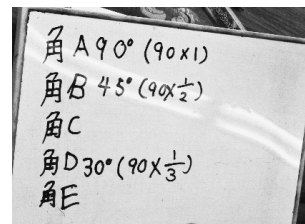 角A90°(90×1)
角B 45°(90×1/2)
角C
角D30°(90×1/3)
角E